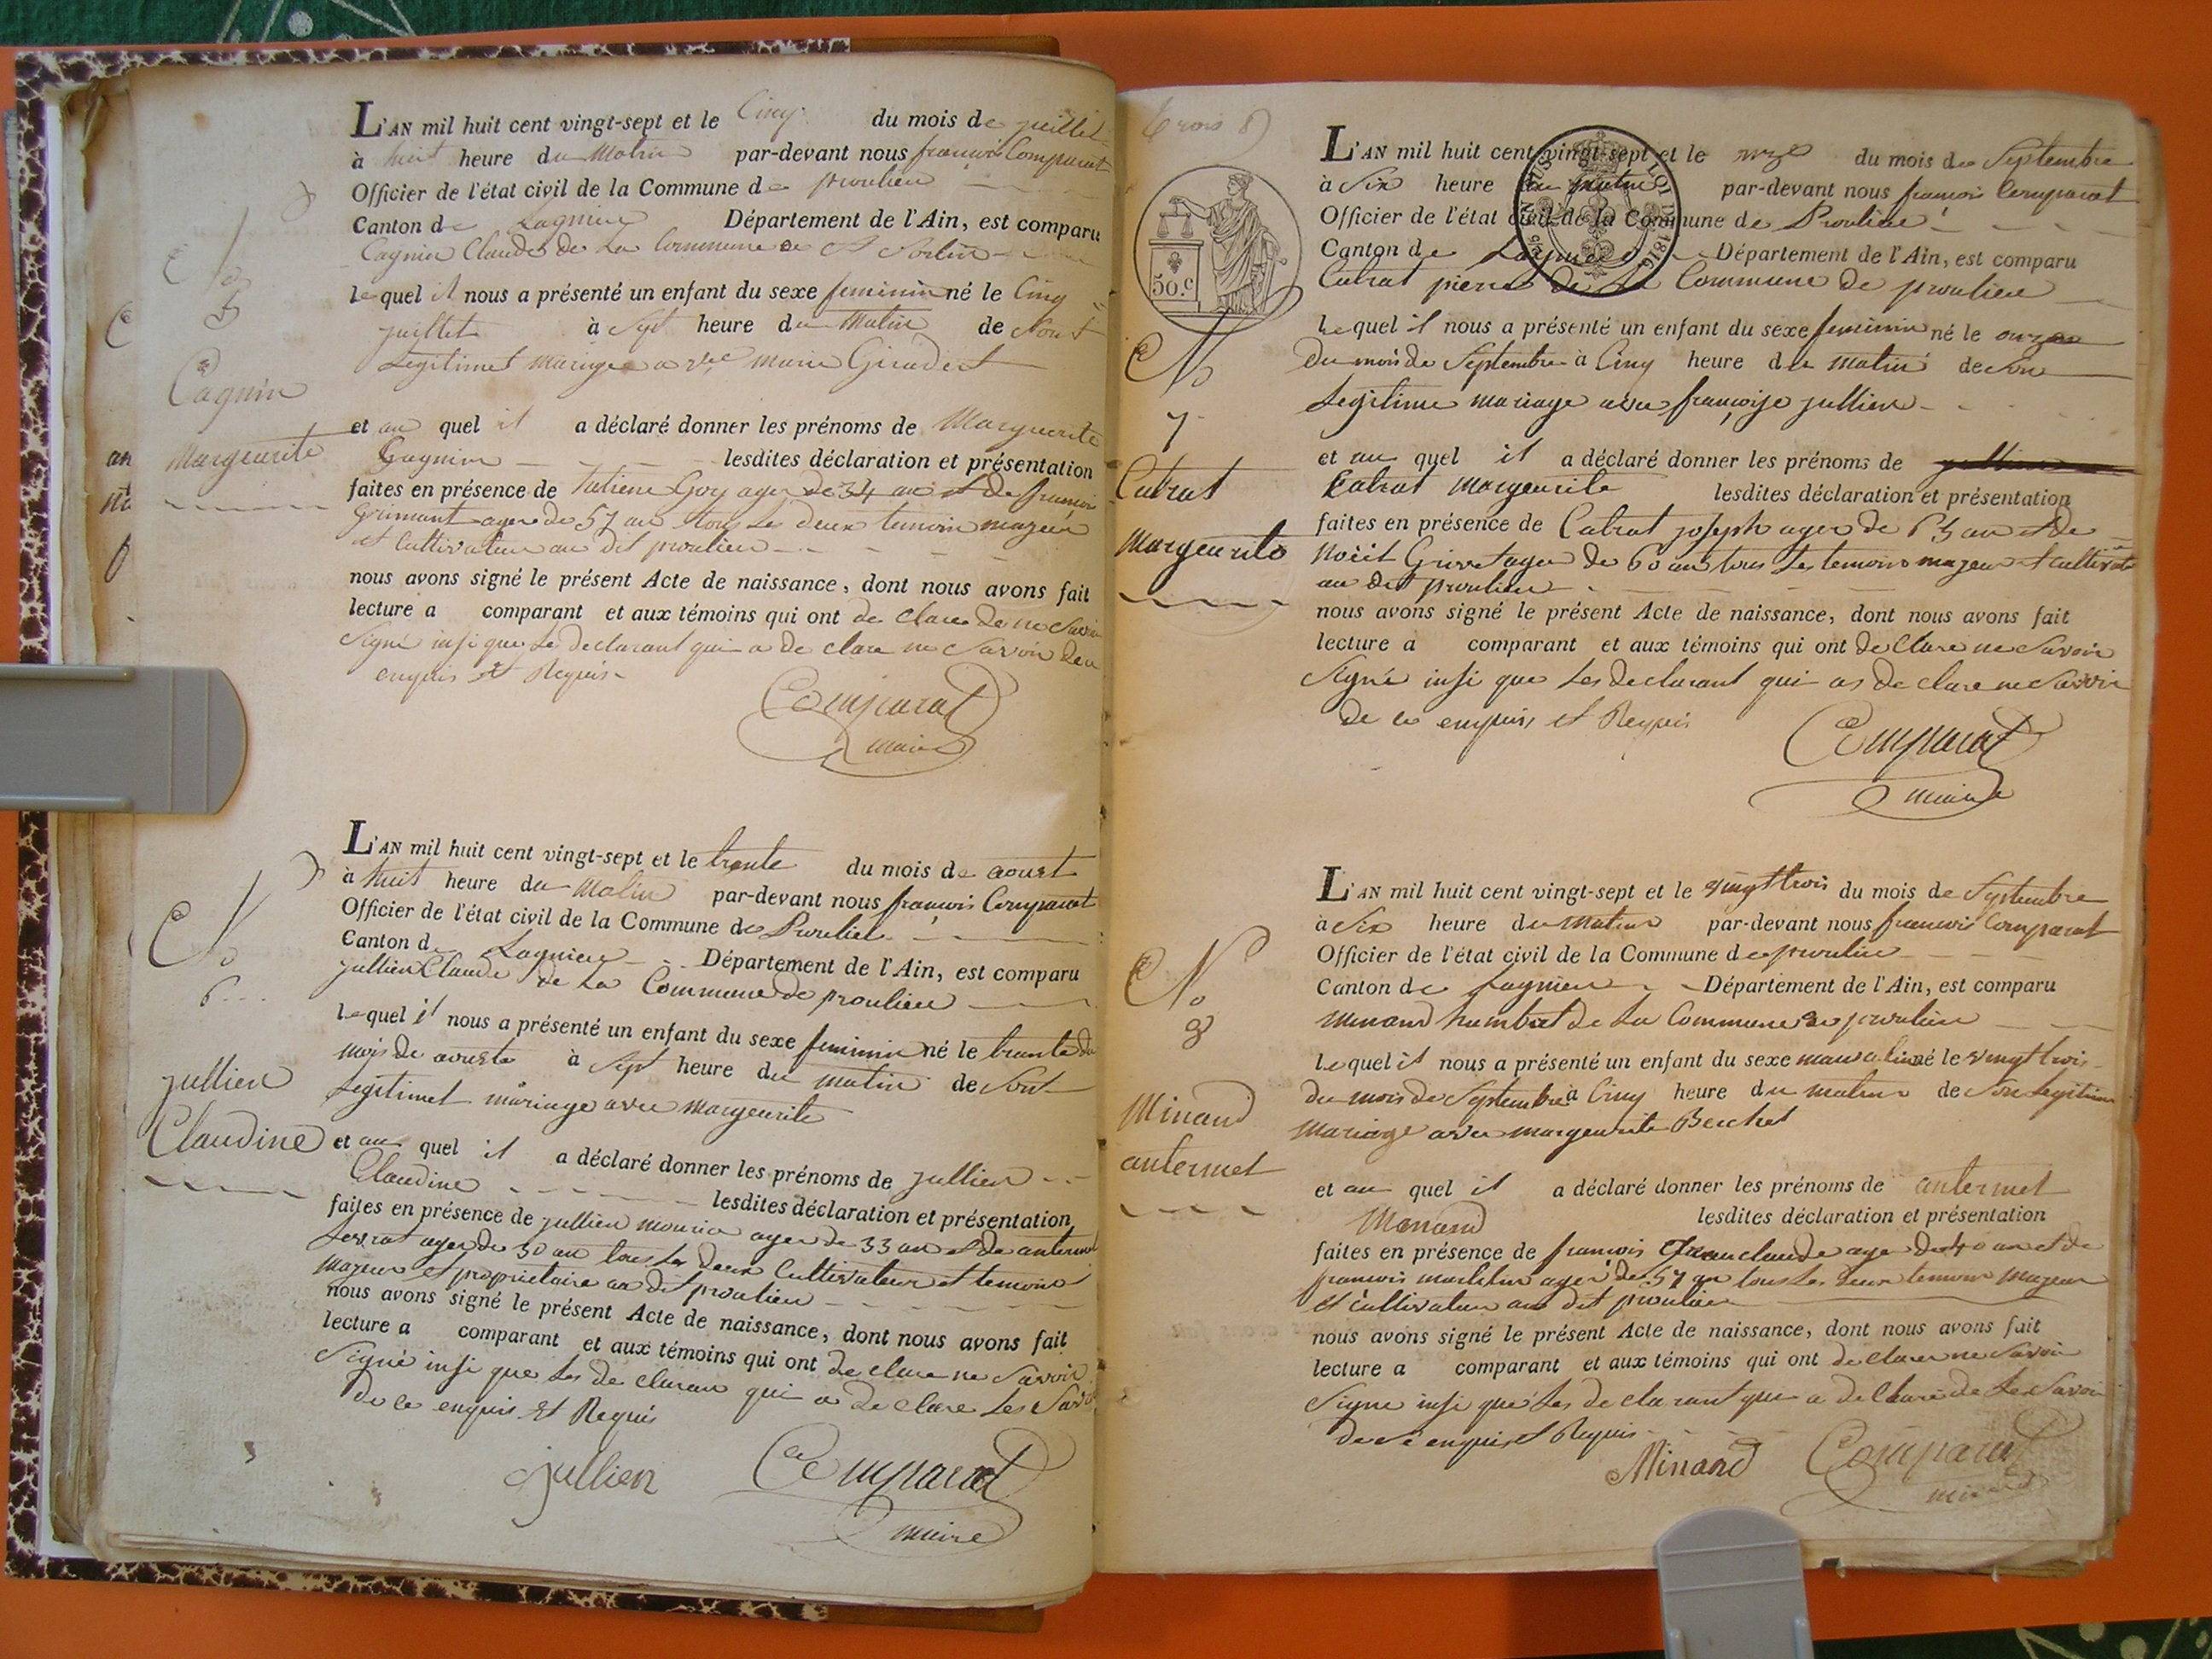 L'AN mil huit cent vingt-sept et le Cinq du mois de juillet
à huit heure du Matin par-devant nous francois Comparat
Officier de l'état civil de la Commune de proulieu
Canton de Lagnieu Département de l'Ain, est comparu
Cagnin Claude de La Commune de St Sorlin
lequel il nous a présenté un enfant du sexe feminin né le Cinq
juillet à Sept heure du Matin de Sont
Legitimet mariage avec marie Giradert
et au quel il a déclaré donner les prénoms de Marguerite
Gagnin lesdites déclaration et présentation
faites en présence de Goy ager de 34 an et de francois
ager de 57 an tous Les deux temoin majeur
et Cultivateur au dit proulieu
nous avons signé le présent Acte de naissance, dont nous avons fait
lecture a comparant et aux témoins qui ont de Clare de ne Savoir
Signé insi que Le declarant qui a de clare ne Savoir de ce
enquis et Requis
Comparat
maire
No
5
Cagnin
Marguerite
L'AN mil huit cent vingt-sept et le trante du mois de aoust
à huit heure du Matin par-devant nous francois Comparat
Officier de l'état civil de la Commune de Proulieu
Canton de Lagnieu Département de l'Ain, est comparu
jullien Claude de La Commune de proulieu
lequel il nous a présenté un enfant du sexe feminin né le trante du
mois de aouste à Sept heure du matin de Sont
Legitimet mariage avec margeurite
et au quel il a déclaré donner les prénoms de jullien
Claudine lesdites déclaration et présentation
faites en présence de jullien ager de 33 an et de antermet
Serrat ager de 30 an tous Les deux Cultivateur et temoins
majeur et proprietaire au dit proulieu
nous avons signé le présent Acte de naissance, dont nous avons fait
lecture a comparant et aux témoins qui ont de clare ne Savoir
Signé insi que Les de claran qui a de clare Les Savoir
de ce enquis et Requis
jullien Comparat
maire
No
6
jullien
Claudine
L'AN mil huit cent vingt-sept et le onze du mois de Septembre
à Six heure du matin par-devant nous francois Comparat
Officier de l'état civil de la Commune de Proulieu
Canton de Lagnieu Département de l'Ain, est comparu
Cabrat pierre de La Commune de proulieu
lequel il nous a présenté un enfant du sexe feminin né le onze
du mois de Septembre à Cinq heure du matin de Son
Legitime mariage avec françoise jullien
et au quel il a déclaré donner les prénoms de
Cabrat Margeurite lesdites déclaration et présentation
faites en présence de Cabrat joseph ager de 63 an et de
Grivet ager de 60 ans tous Les temoins majeur et cultivateur
au dit proulieu
nous avons signé le présent Acte de naissance, dont nous avons fait
lecture a comparant et aux témoins qui ont de Clare ne Savoir
Signé insi que Les declarant qui as de clare ne Savoir
de ce enquis et Requis
Comparat
maire
50.c
LOI DE 1816
No
7
Cabrat
Margeurite
L'AN mil huit cent vingt-sept et le vingt trois du mois de Septembre
à Six heure du Matin par-devant nous francois Comparat
Officier de l'état civil de la Commune de proulieu
Canton de Lagnieu Département de l'Ain, est comparu
Minand humbert de La Commune de proulieu
lequel il nous a présenté un enfant du sexe né le vingt trois
du mois de Septembre à Cinq heure du matin de Son Legitime
Mariage avec margeurite Berchet
et au quel il a déclaré donner les prénoms de antermet
Minand lesdites déclaration et présentation
faites en présence de francois jean claude ager de 40 an et de
francois ager de 57 an tous Les deux temoin Majeur
et cultivateur au dit proulieu
nous avons signé le présent Acte de naissance, dont nous avons fait
lecture a comparant et aux témoins qui ont de clarer ne Savoir
Signe insi que Les de clarant que a de Claré de Les Savoir
de ce enquis et Requis
Minand Comparat
maire
No
8
Minand
antermet